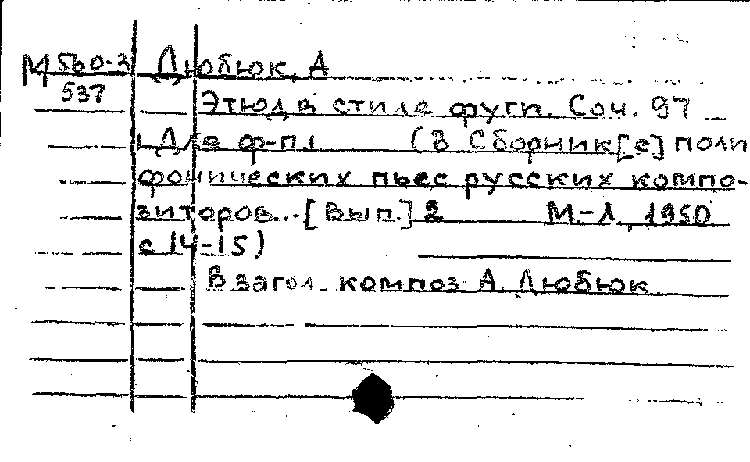 М 560-2 Дюбюк, А
537
Этюд в стиле фуги. Соч. 97
[Для ф-п] (В Сборник[е] поли
фонических пьес русских компо-
зиторов... [Вып.] 2 М-Л, 1950
с 14-15)
В загол. композ А. Дюбюк